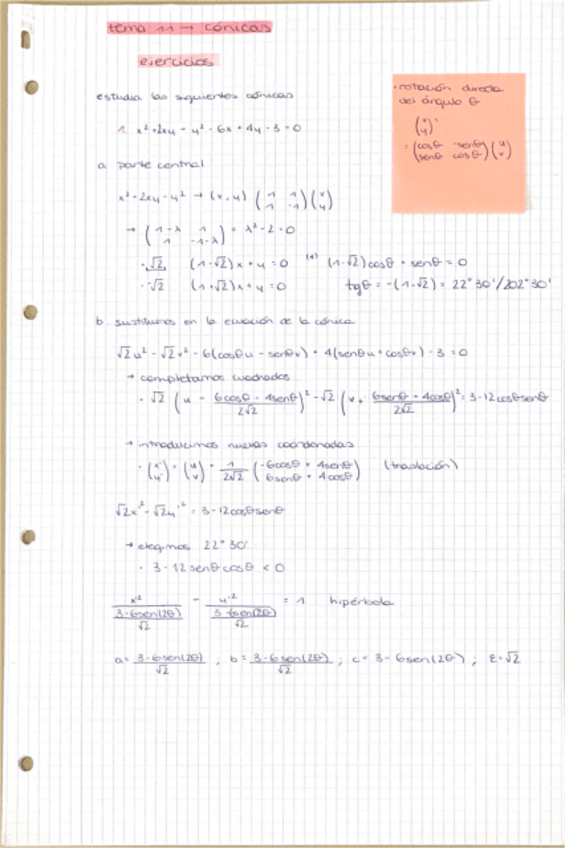 tema 11 → cónicas
ejercicios
estudia las siguientes cónicas
1. x² + 2xy - y² - 6x + 4y - 3 = 0
· rotación directa
del ángulo θ
(x y)'
= (cosθ -senθ / senθ cosθ) (u v)
a. parte central
x² + 2xy - y² → (x, y) (1 1 / 1 -1) (x y)
→ (1-λ 1 / 1 -1-λ) = λ² - 2 = 0
· √2 (1-√2)x + y = 0 (*) (1-√2)cosθ + senθ = 0
· -√2 (1+√2)x + y = 0 tgθ = -(1-√2) = 22°30'/202°30'
b. sustituimos en la ecuación de la cónica
√2u² - √2v² - 6(cosθu - senθv) + 4(senθu + cosθv) - 3 = 0
→ completamos cuadrados
· √2 (u - 6cosθ - 4senθ / 2√2)² - √2 (v + 6senθ + 4cosθ / 2√2)² = 3 - 12cosθsenθ
→ introducimos nuevas coordenadas
· (x' y') = (u v) + 1/2√2 (-6cosθ + 4senθ / 6senθ + 4cosθ) (traslación)
√2x'² - √2y'² = 3 - 12cosθsenθ
→ elegimos 22°30'
· 3 - 12senθcosθ < 0
x'² / (3-6sen(2θ) / √2) - y'² / (3-6sen(2θ) / √2) = 1 hipérbola
a = 3-6sen(2θ) / √2 ; b = 3-6sen(2θ) / √2 ; c = 3-6sen(2θ) ; ε = √2